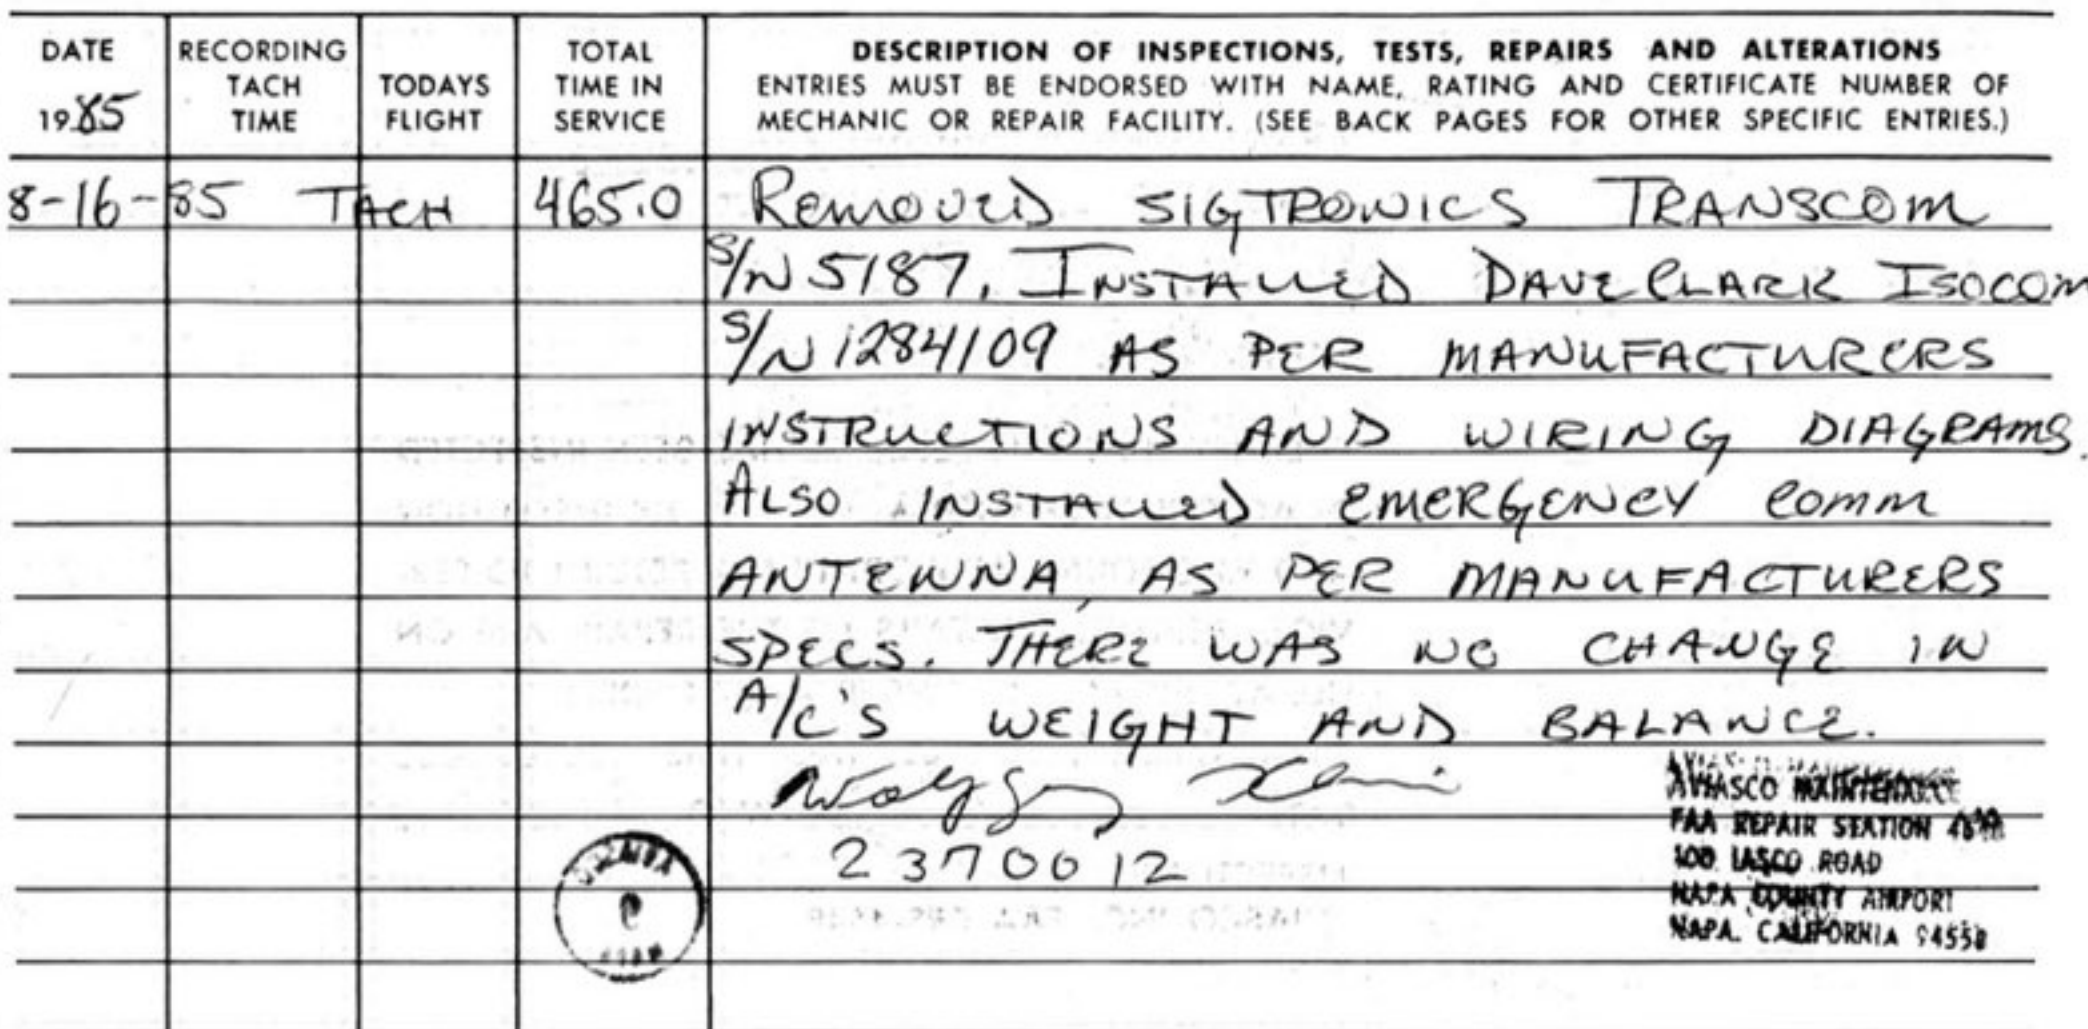 DATE
1985
RECORDING
TACH
TIME
TODAYS
FLIGHT
TOTAL
TIME IN
SERVICE
DESCRIPTION OF INSPECTIONS, TESTS, REPAIRS AND ALTERATIONS
ENTRIES MUST BE ENDORSED WITH NAME, RATING AND CERTIFICATE NUMBER OF
MECHANIC OR REPAIR FACILITY. (SEE BACK PAGES FOR OTHER SPECIFIC ENTRIES.)
8-16-85 TACH 465.0 REMOVED SIGTRONICS TRANSCOM
S/N 5187, INSTALLED DAVE CLARK ISOCOM
S/N 1284109 AS PER MANUFACTURERS
INSTRUCTIONS AND WIRING DIAGRAMS.
ALSO INSTALLED EMERGENCY COMM
ANTENNA, AS PER MANUFACTURERS
SPECS. THERE WAS NO CHANGE IN
A/C'S WEIGHT AND BALANCE.
2370012
MAINTENANCE
FAA REPAIR STATION
IASCO ROAD
NAPA COUNTY AIRPORT
NAPA, CALIFORNIA 94558